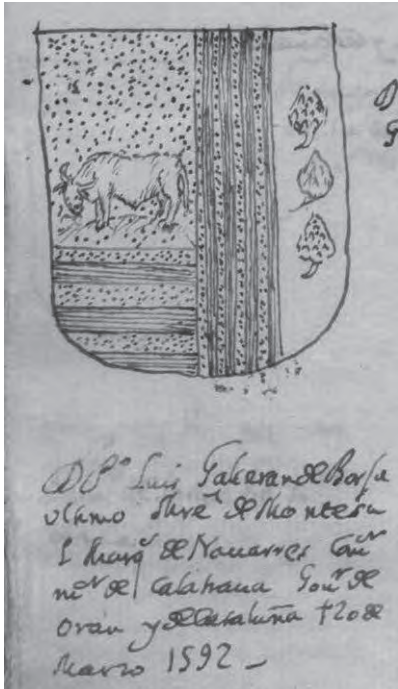 D P.º Luis Galceran de Borja
ultimo Mre de Montesa
I Marq.s de Nauarres Com.or
m.or de Calatraua Gou.or de
Oran y de Cataluña † 20 de
Marzo 1592 —